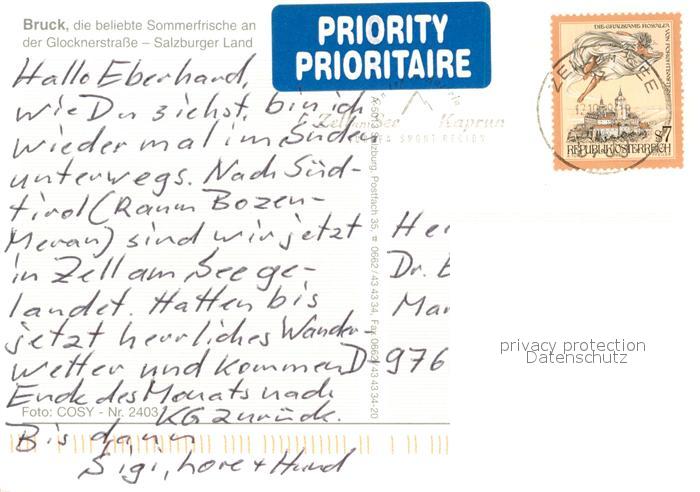 Bruck, die beliebte Sommerfrische an
der Glocknerstraße – Salzburger Land
PRIORITY
PRIORITAIRE
Hallo Eberhard,
wie Du siehst, bin ich
wieder mal im Süden
unterwegs. Nach Süd-
tirol (Raum Bozen-
Meran) sind wir jetzt
in Zell am See ge-
landet. Hatten bis
jetzt herrliches Wander-
wetter und kommen
Ende des Monats nach
KG zurück.
Bis dann
Sigi, Lore + Hund
Foto: COSY - Nr. 2403
Salzburg, Postfach 35, ☎ 0662/43 43 34, Fax 0662/43 43 34-20
Zell am See Kaprun
EUROPA SPORT REGION
ZELL AM SEE
5700
DIE GRAUSAME ROSALIA VON FORCHTENSTEIN
S7
REPUBLIK ÖSTERREICH
Her
Dr.
Mar
D-976
privacy protection
Datenschutz